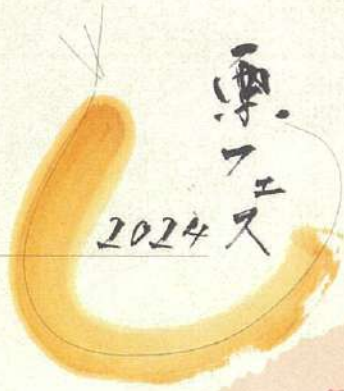 栗フェス
2024